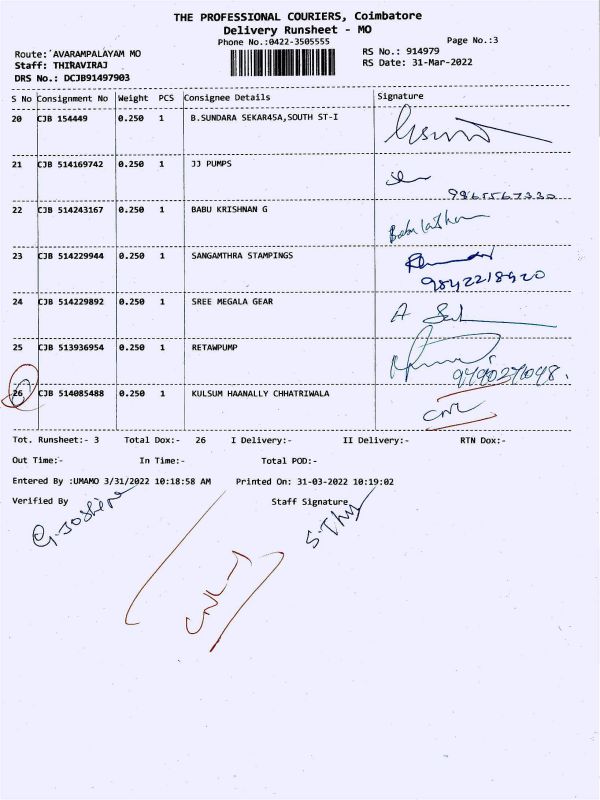 THE PROFESSIONAL COURIERS, Coimbatore
Delivery Runsheet - MO
Phone No.:0422-3505555
Page No.:3
Route: AVARAMPALAYAM MO
RS No.: 914979
Staff: THIRAVIRAJ
RS Date: 31-Mar-2022
DRS No.: DCJB91497903
S No Consignment No Weight PCS Consignee Details Signature
20 CJB 154449 0.250 1 B.SUNDARA SEKAR45A,SOUTH ST-I
21 CJB 514169742 0.250 1 JJ PUMPS
9965567330
22 CJB 514243167 0.250 1 BABU KRISHNAN G
23 CJB 514229944 0.250 1 SANGAMTHRA STAMPINGS
9842218920
24 CJB 514229892 0.250 1 SREE MEGALA GEAR
25 CJB 513936954 0.250 1 RETAWPUMP
26 CJB 514085488 0.250 1 KULSUM HAANALLY CHHATRIWALA
Tot. Runsheet:- 3 Total Dox:- 26 I Delivery:- II Delivery:- RTN Dox:-
Out Time:- In Time:- Total POD:-
Entered By :UMAMO 3/31/2022 10:18:58 AM Printed On: 31-03-2022 10:19:02
Verified By Staff Signature